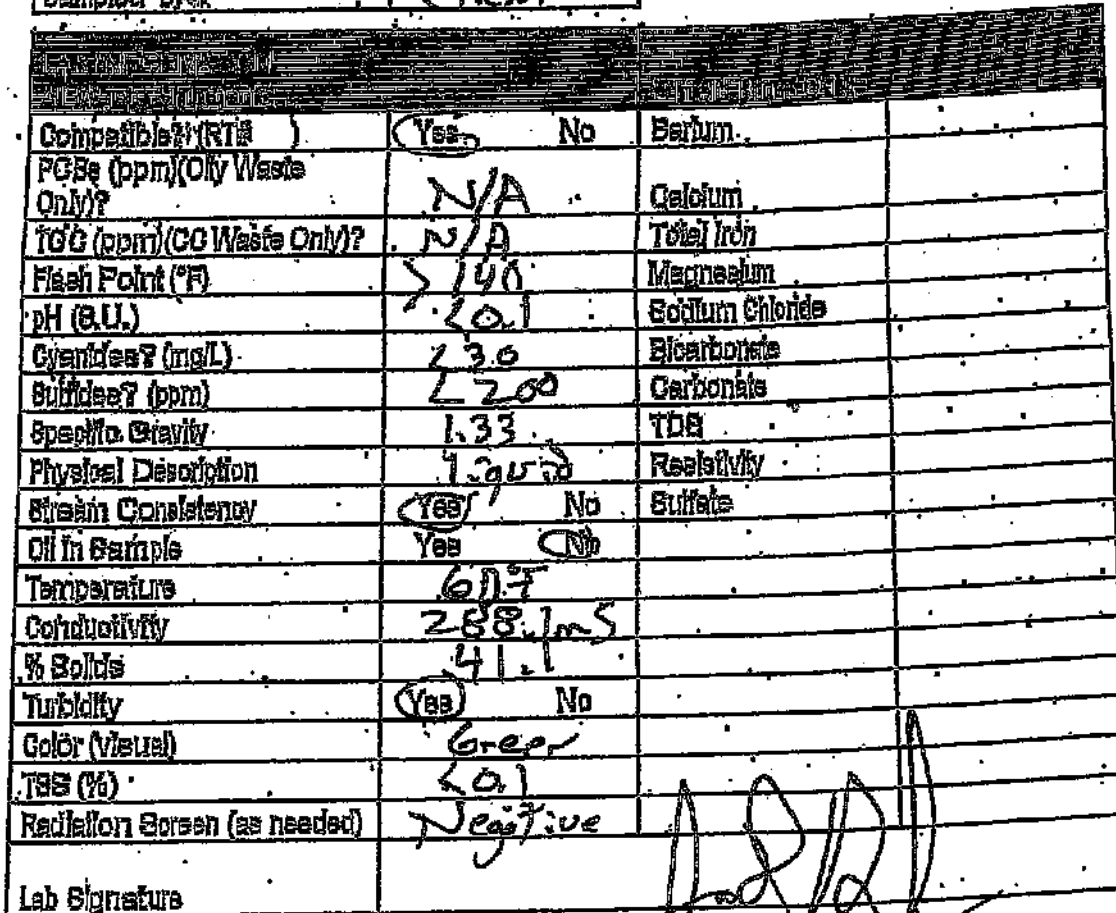 Compatible? (RT# ) Yes No Barium
PCBs (ppm)(Oily Waste
Only)? N/A Calcium
TOC (ppm)(CC Waste Only)? N/A Total Iron
Flash Point (°F) >140 Magnesium
pH (S.U.) <0.1 Sodium Chloride
Cyanides? (mg/L) <30 Bicarbonate
Sulfides? (ppm) <200 Carbonate
Specific Gravity 1.33 TDS
Physical Description Liquid Resistivity
Stream Consistency Yes No Sulfate
Oil in Sample Yes No
Temperature
Conductivity 288.1mS
% Solids 41.1
Turbidity Yes No
Color (visual) Green
TSS (%) <0.1
Radiation Screen (as needed) Negative
Lab Signature